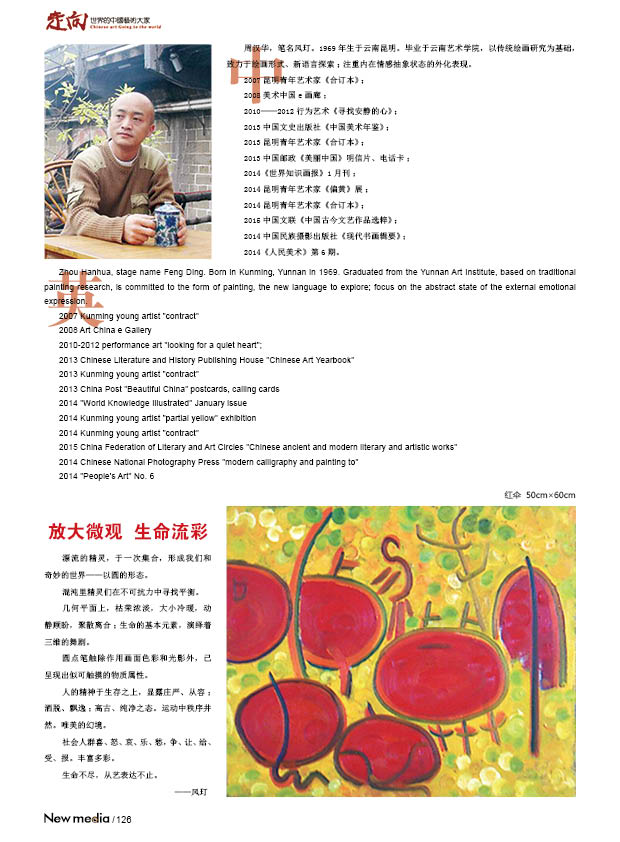 走向世界的中國藝術大家
Chinese art Going to the world
周汉华，笔名风玎。1969 年生于云南昆明。毕业于云南艺术学院，以传统绘画研究为基础，
致力于绘画形式、新语言探索；注重内在情感抽象状态的外化表现。
中
2007 昆明青年艺术家《合订本》；
2008 美术中国 e 画廊；
2010——2012 行为艺术《寻找安静的心》；
2013 中国文史出版社《中国美术年鉴》；
2013 昆明青年艺术家《合订本》；
2013 中国邮政《美丽中国》明信片、电话卡；
2014《世界知识画报》1 月刊；
2014 昆明青年艺术家《偏黄》展；
2014 昆明青年艺术家《合订本》；
2015 中国文联《中国古今文艺作品选粹》；
2014 中国民族摄影出版社《现代书画辑要》；
2014《人民美术》第 6 期。
Zhou Hanhua, stage name Feng Ding. Born in Kunming, Yunnan in 1969. Graduated from the Yunnan Art Institute, based on traditional
painting research, is committed to the form of painting, the new language to explore; focus on the abstract state of the external emotional
expression.
英
2007 Kunming young artist "contract"
2008 Art China e Gallery
2010-2012 performance art "looking for a quiet heart";
2013 Chinese Literature and History Publishing House "Chinese Art Yearbook"
2013 Kunming young artist "contract"
2013 China Post "Beautiful China" postcards, calling cards
2014 "World Knowledge Illustrated" January issue
2014 Kunming young artist "partial yellow" exhibition
2014 Kunming young artist "contract"
2015 China Federation of Literary and Art Circles "Chinese ancient and modern literary and artistic works"
2014 Chinese National Photography Press "modern calligraphy and painting to"
2014 "People's Art" No. 6
红伞 50cm×60cm
放大微观 生命流彩
源流的精灵，于一次集合，形成我们和
奇妙的世界——以圆的形态。
混沌里精灵们在不可抗力中寻找平衡。
几何平面上，枯荣浓淡，大小冷暖，动
静顾盼，聚散离合；生命的基本元素，演绎着
三维的舞剧。
圆点笔触除作用画面色彩和光影外，已
呈现出似可触摸的物质属性。
人的精神于生存之上，显露庄严、从容；
洒脱、飘逸；高古、纯净之态。运动中秩序井
然。唯美的幻境。
社会人群喜、怒、哀、乐、愁，争、让、给、
受、报。丰富多彩。
生命不尽，从艺表达不止。
——风玎
New media / 126